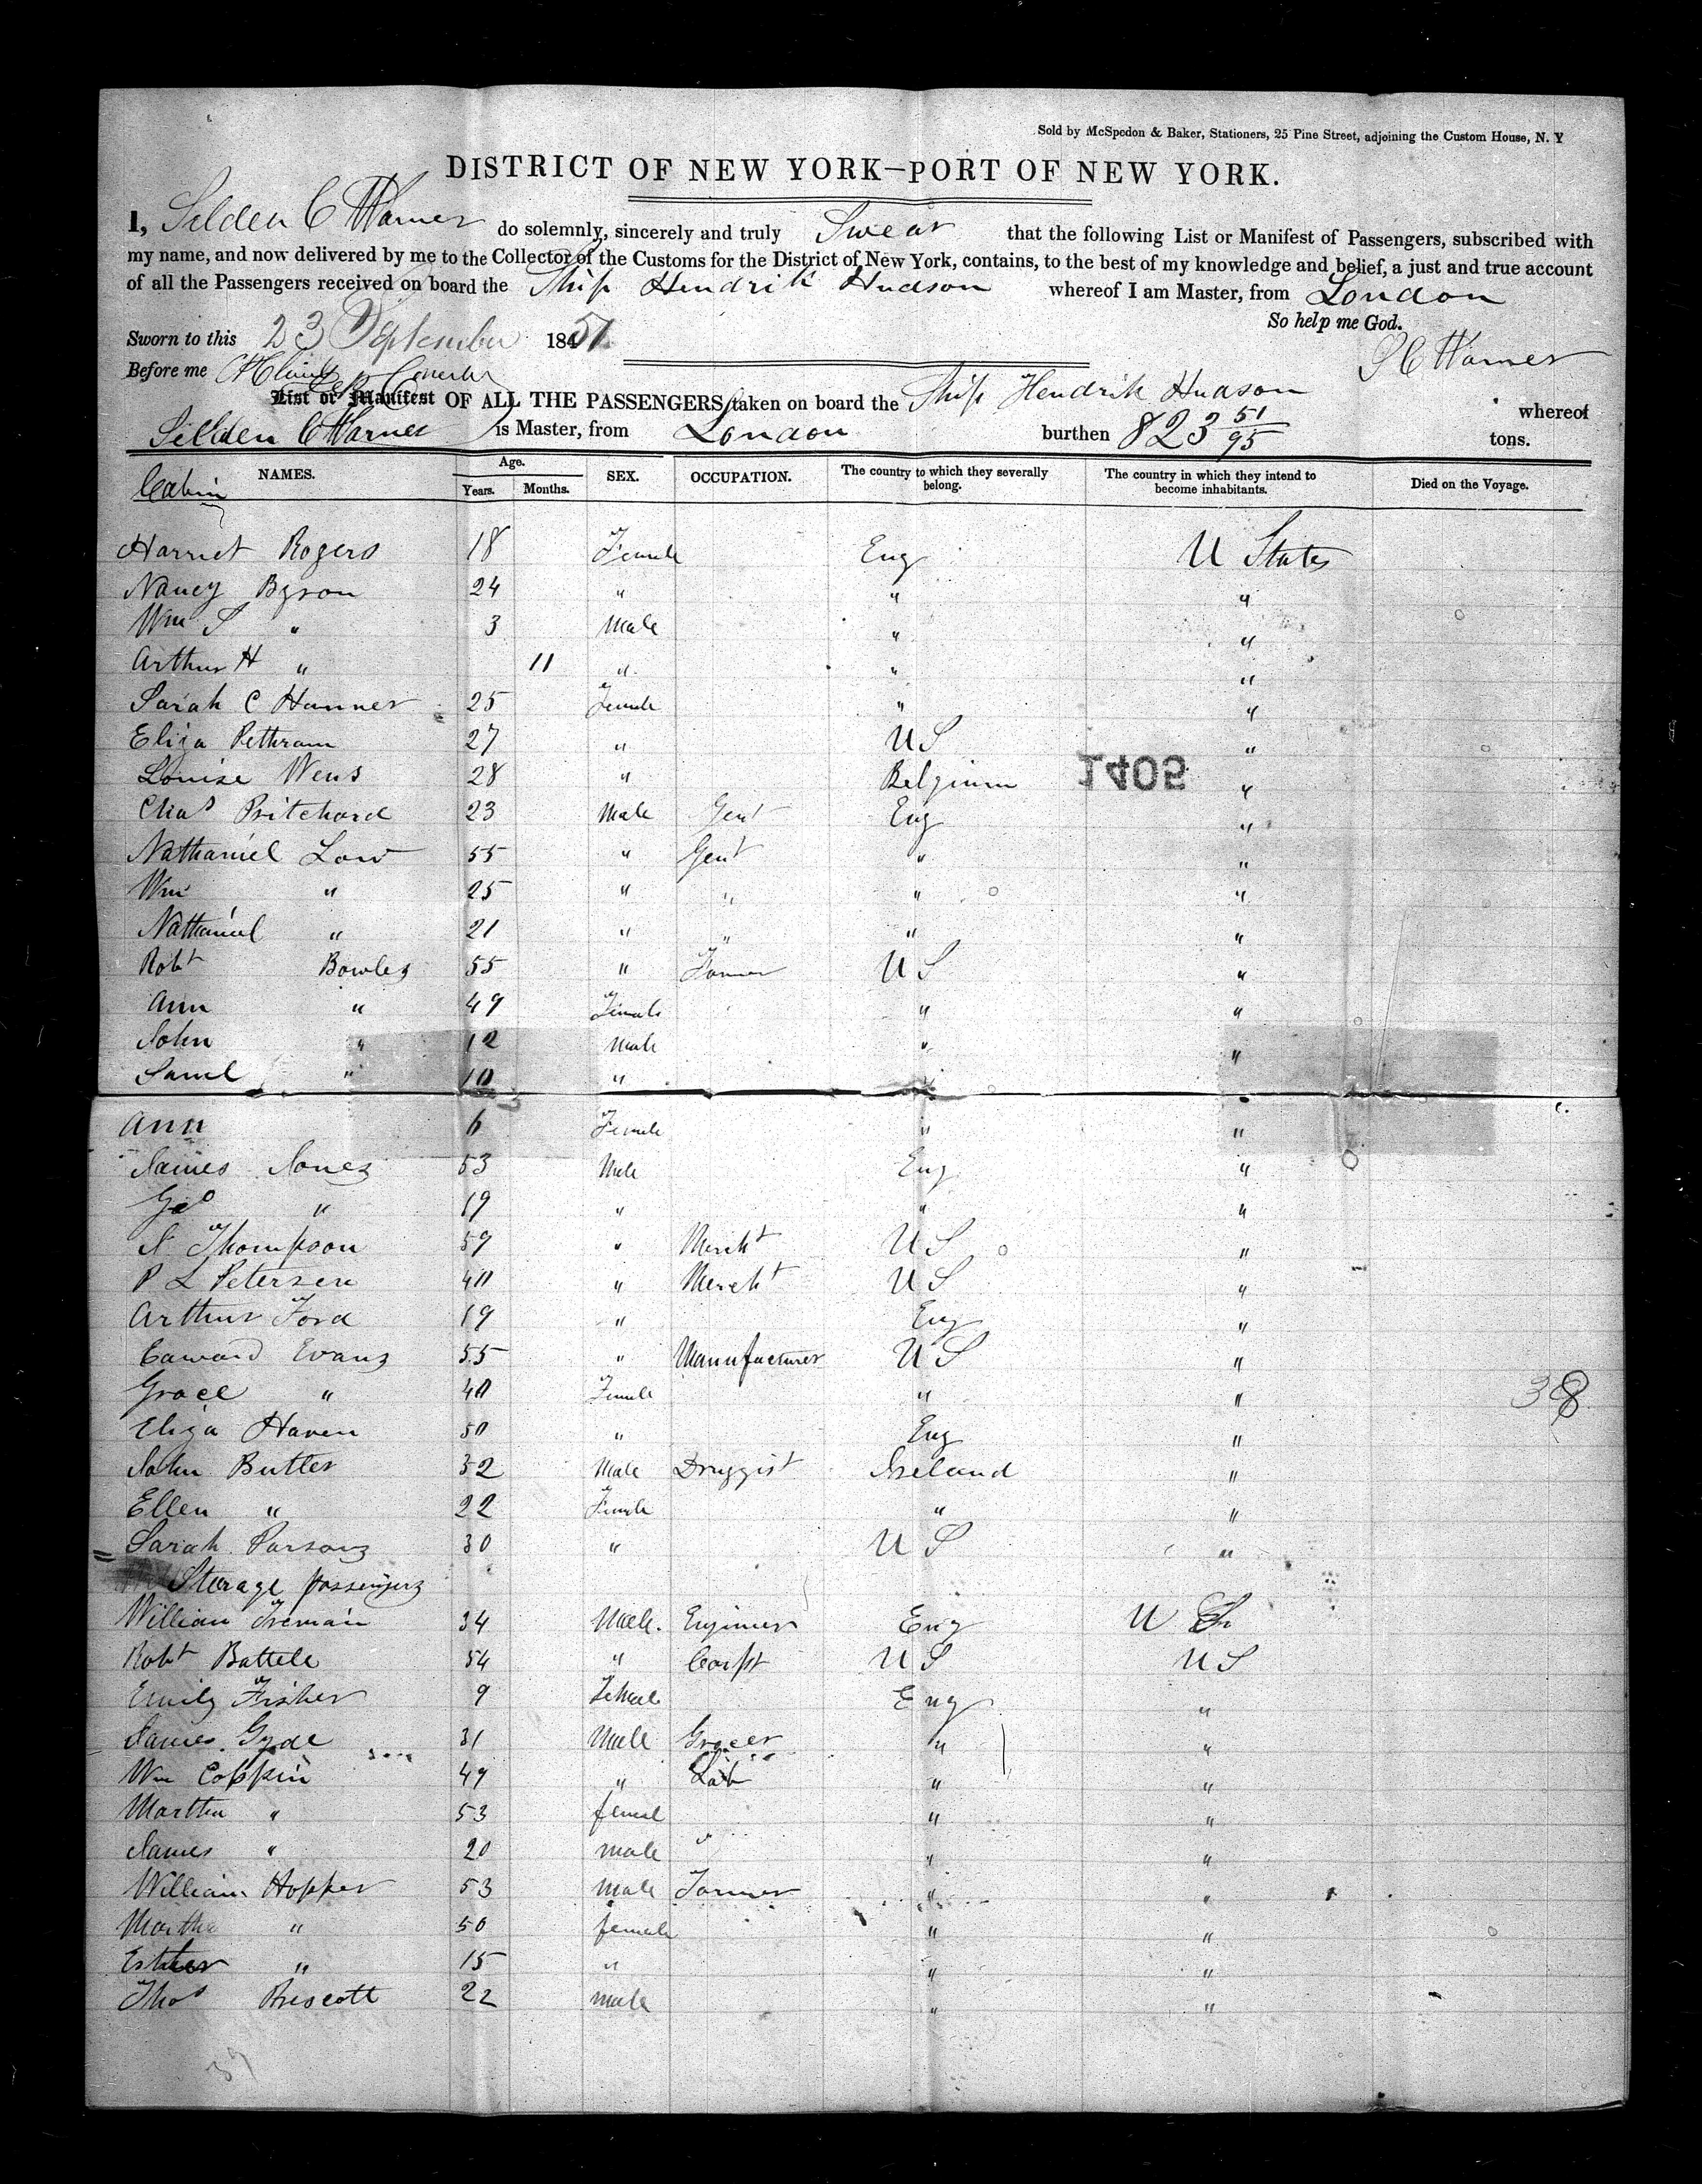 Sold by McSpedon & Baker, Stationers, 25 Pine Street, adjoining the Custom House, N. Y
DISTRICT OF NEW YORK—PORT OF NEW YORK.
I, Selden C Warner do solemnly, sincerely and truly Swear that the following List or Manifest of Passengers, subscribed with
my name, and now delivered by me to the Collector of the Customs for the District of New York, contains, to the best of my knowledge and belief, a just and true account
of all the Passengers received on board the Ship Hendrik Hudson whereof I am Master, from London
So help me God.
Sworn to this 23 September 1851
S C Warner
Before me
List or Manifest OF ALL THE PASSENGERS taken on board the Ship Hendrik Hudson whereof
Selden C Warner is Master, from London burthen 823 51/95 tons.
NAMES. Age. Years. Months. SEX. OCCUPATION. The country to which they severally belong. The country in which they intend to become inhabitants. Died on the Voyage.
Cabin
Harriet Rogers 18 Female Eng U States
Nancy Byron 24 " " "
Wm S " 3 Male " "
Arthur H " 11 " " "
Sarah C Hanner 25 Female " "
Eliza Pethram 27 " U S "
Louise Wens 28 " Belgium "
1405
Chas Pritchard 23 Male Gent Eng "
Nathaniel Low 55 " Gent " "
Wm " 25 " " " "
Nathaniel " 21 " " " "
Robt Bowles 55 " Farmer U S "
Ann " 49 Female " "
John " 12 Male " "
Saml " 10 " " "
Ann 6 Female " "
James Jones 53 Male Eng "
Geo " 19 " " "
N Thompson 59 " Mercht U S "
P L Petersen 40 " Mercht U S "
Arthur Ford 19 " Eng "
Edward Evans 55 " Manufacturer U S "
Grace " 40 Female " "
38
Eliza Haven 50 " Eng "
John Butler 32 Male Druggist Ireland "
Ellen " 22 Female " "
Sarah Parsons 30 " U S "
Sterage passengers
William Tremain 34 Male. Enginer Eng U S
Robt Battele 54 " Carpt U S U S
Emily Fisher 9 Femal Eng "
James Gyde 31 Male Grocer " "
Wm Coppin 49 " Lab " "
Martha " 53 femal " "
James " 20 male " " "
William Hopper 53 male Farmer " "
Martha " 50 female " "
Esther " 15 " " "
Thos Prescott 22 male " "
39